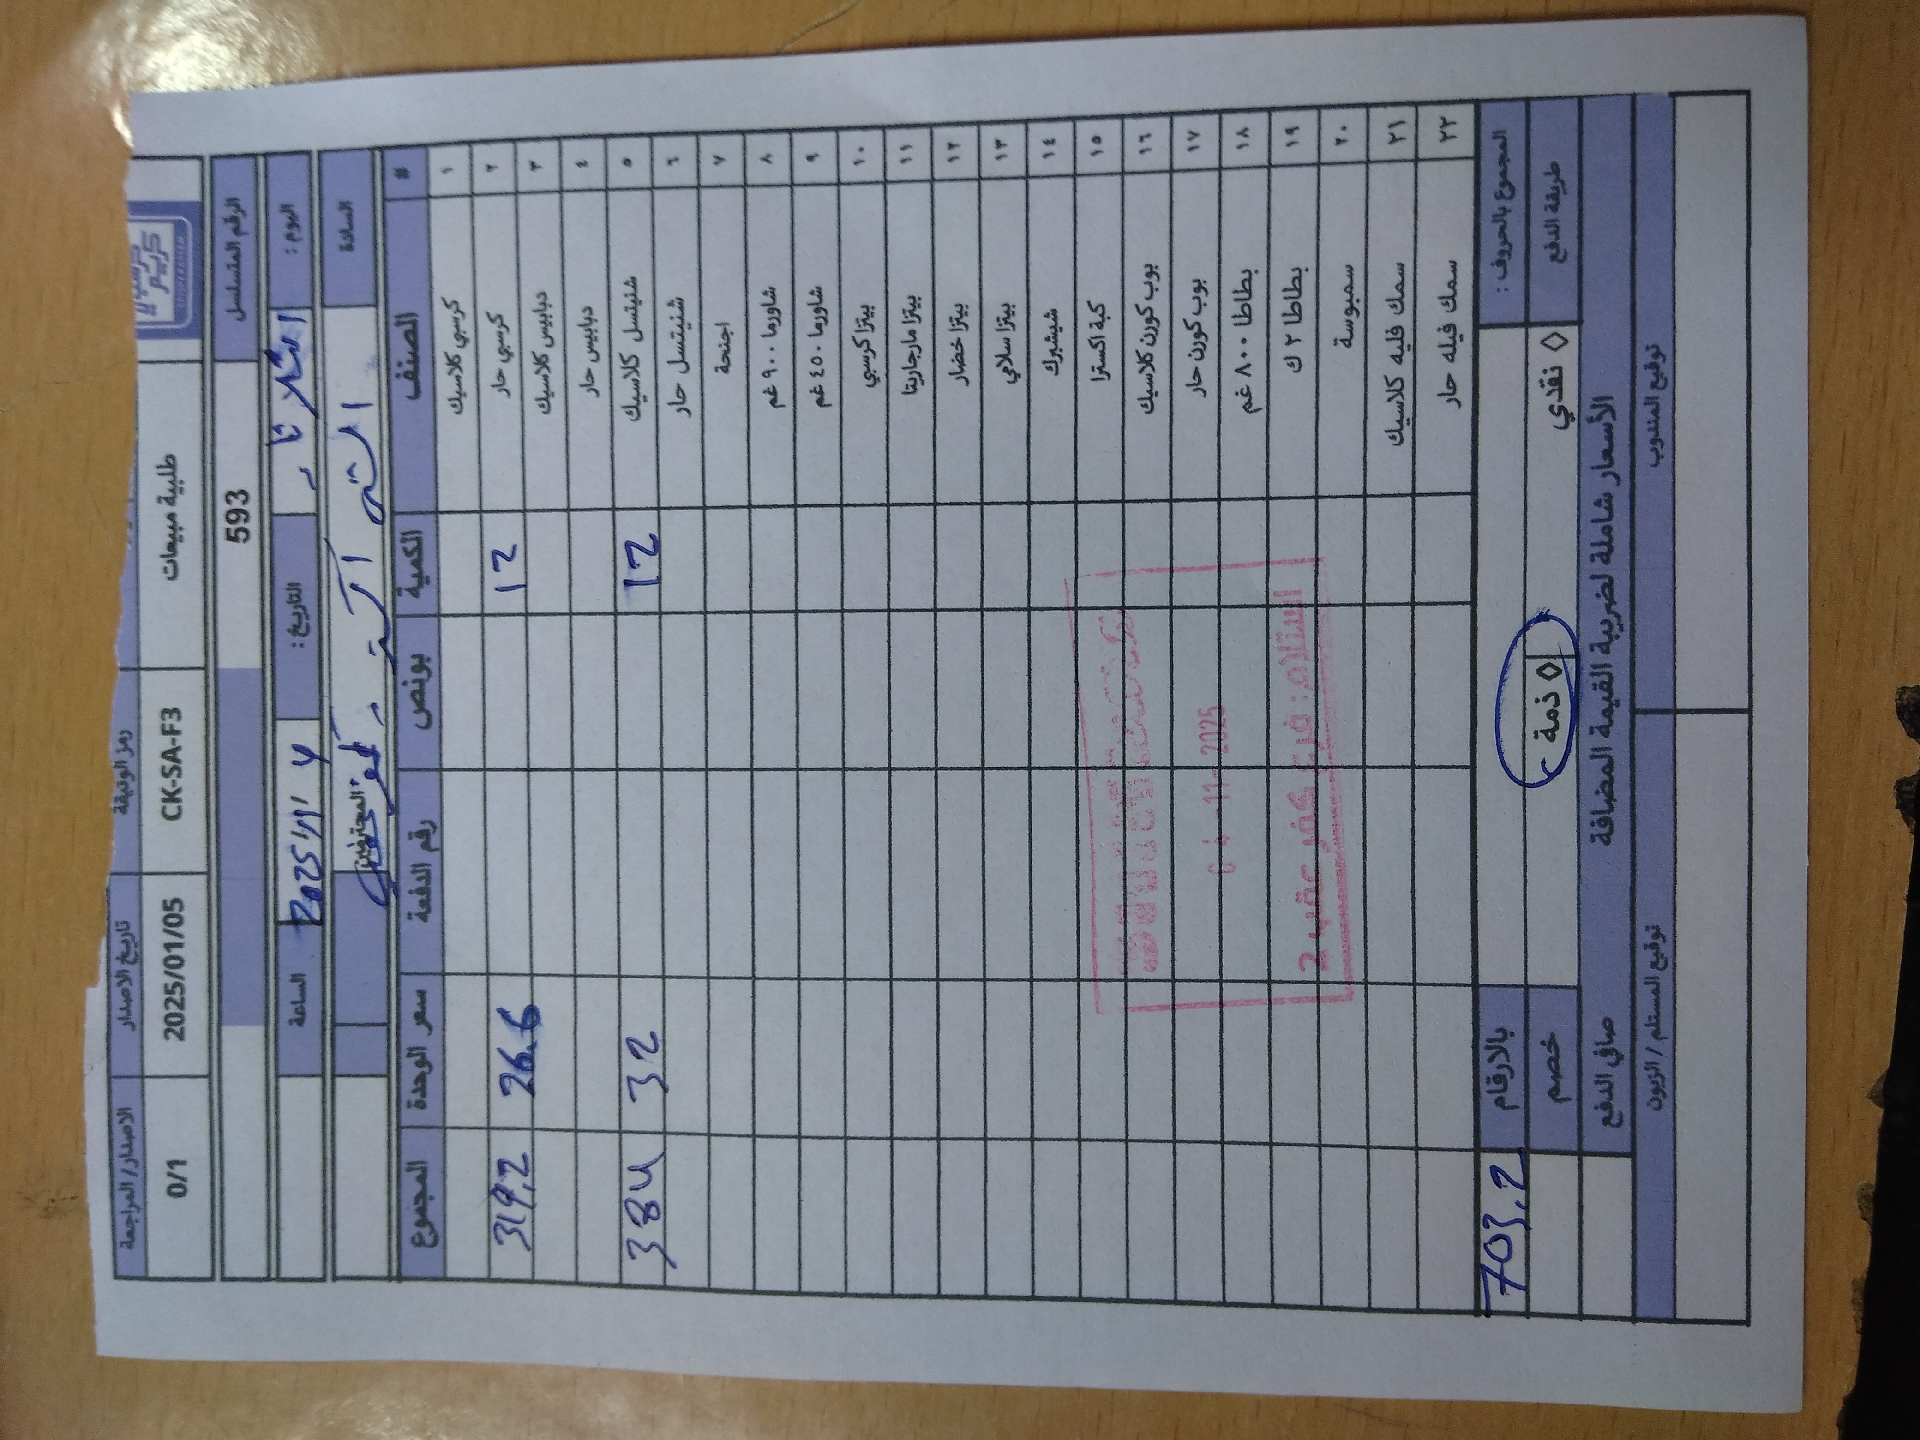 كرسبي
كريم
طلبية مبيعات
رمز الوثيقة
CK-SA-F3
تاريخ الاصدار
2025/01/05
الاصدار/ المراجعة
0/1
الرقم المتسلسل
593
اليوم :
الثلاثاء
التاريخ :
2025/11/4
الساعة
السادة
المحترمين
# الصنف الكمية بونص رقم الدفعة سعر الوحدة المجموع
١ كرسبي كلاسيك
٢ كرسبي حار 12 26.6 319,2
٣ دبابيس كلاسيك
٤ دبابيس حار
٥ شنيتسل كلاسيك 12 32 384
٦ شنيتسل حار
٧ اجنحة
٨ شاورما ٩٠٠ غم
٩ شاورما ٤٥٠ غم
١٠ بيتزا كرسبي
١١ بيتزا مارجاريتا
١٢ بيتزا خضار
١٣ بيتزا سلامي
١٤ شيشبرك
١٥ كبة اكسترا
١٦ بوب كورن كلاسيك
١٧ بوب كورن حار
١٨ بطاطا ٨٠٠ غم
١٩ بطاطا ٢ ك
٢٠ سمبوسة
٢١ سمك فليه كلاسيك
٢٢ سمك فيله حار
04-11-2025
استلام: فرع كفر عقب 2
المجموع بالحروف :
بالارقام
703,2
طريقة الدفع
◊ نقدي
◊ ذمة
خصم
الأسعار شاملة لضريبة القيمة المضافة
صافي الدفع
توقيع المندوب
توقيع المستلم / الزبون